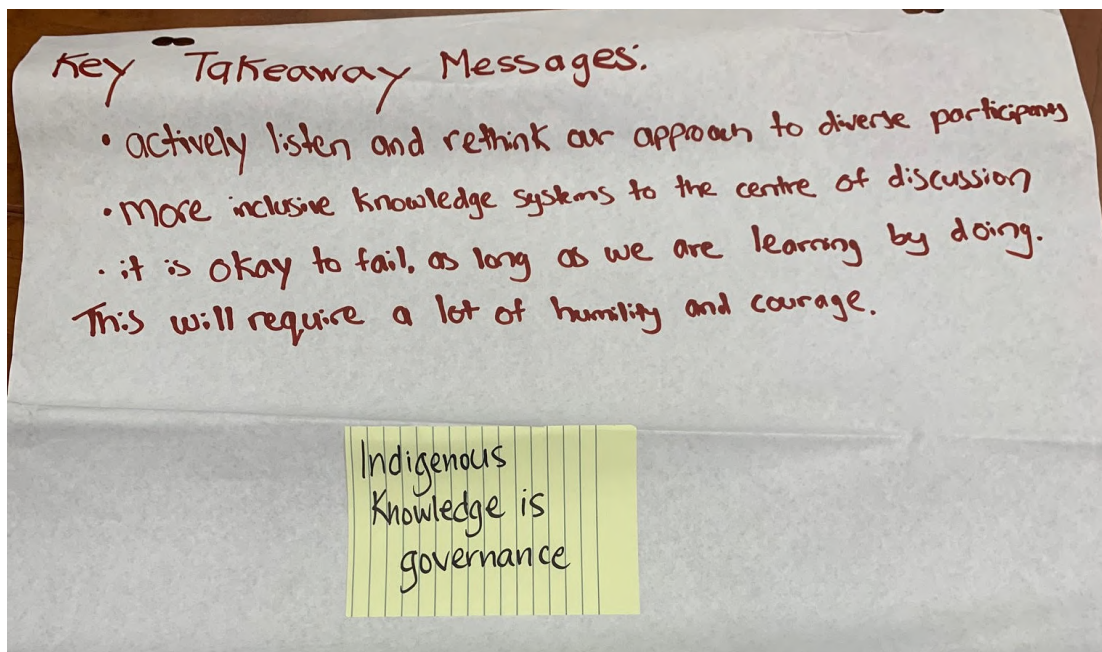 Key Takeaway Messages:
• actively listen and rethink our approach to diverse participants
• more inclusive knowledge systems to the centre of discussion
• it is okay to fail, as long as we are learning by doing.
This will require a lot of humility and courage.
Indigenous
Knowledge is
governance